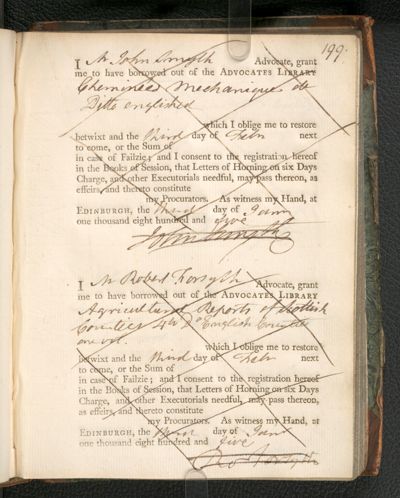 199.
I Mr John Smyth Advocate, grant
me to have borrowed out of the ADVOCATES LIBRARY
Cheminées Mechanique de
Ditto englished
which I oblige me to restore
betwixt and the third day of Febr next
to come, or the Sum of
in case of Failzie; and I consent to the registration hereof
in the Books of Session, that Letters of Horning on six Days
Charge, and other Executorials needful, may pass thereon, as
effeirs, and thereto constitute
my Procurators. As witness my Hand, at
EDINBURGH, the third day of Janry
one thousand eight hundred and five
John Smyth
I Mr Robert Forsyth Advocate, grant
me to have borrowed out of the ADVOCATES LIBRARY
Agricultural Reports of Scottish
Counties 4to Do English Counties
one vol.
which I oblige me to restore
betwixt and the third day of Febr next
to come, or the Sum of
in case of Failzie; and I consent to the registration hereof
in the Books of Session, that Letters of Horning on six Days
Charge, and other Executorials needful, may pass thereon,
as effeirs, and thereto constitute
my Procurators. As witness my Hand, at
EDINBURGH, the third day of Janry
one thousand eight hundred and five
Ro Forsyth